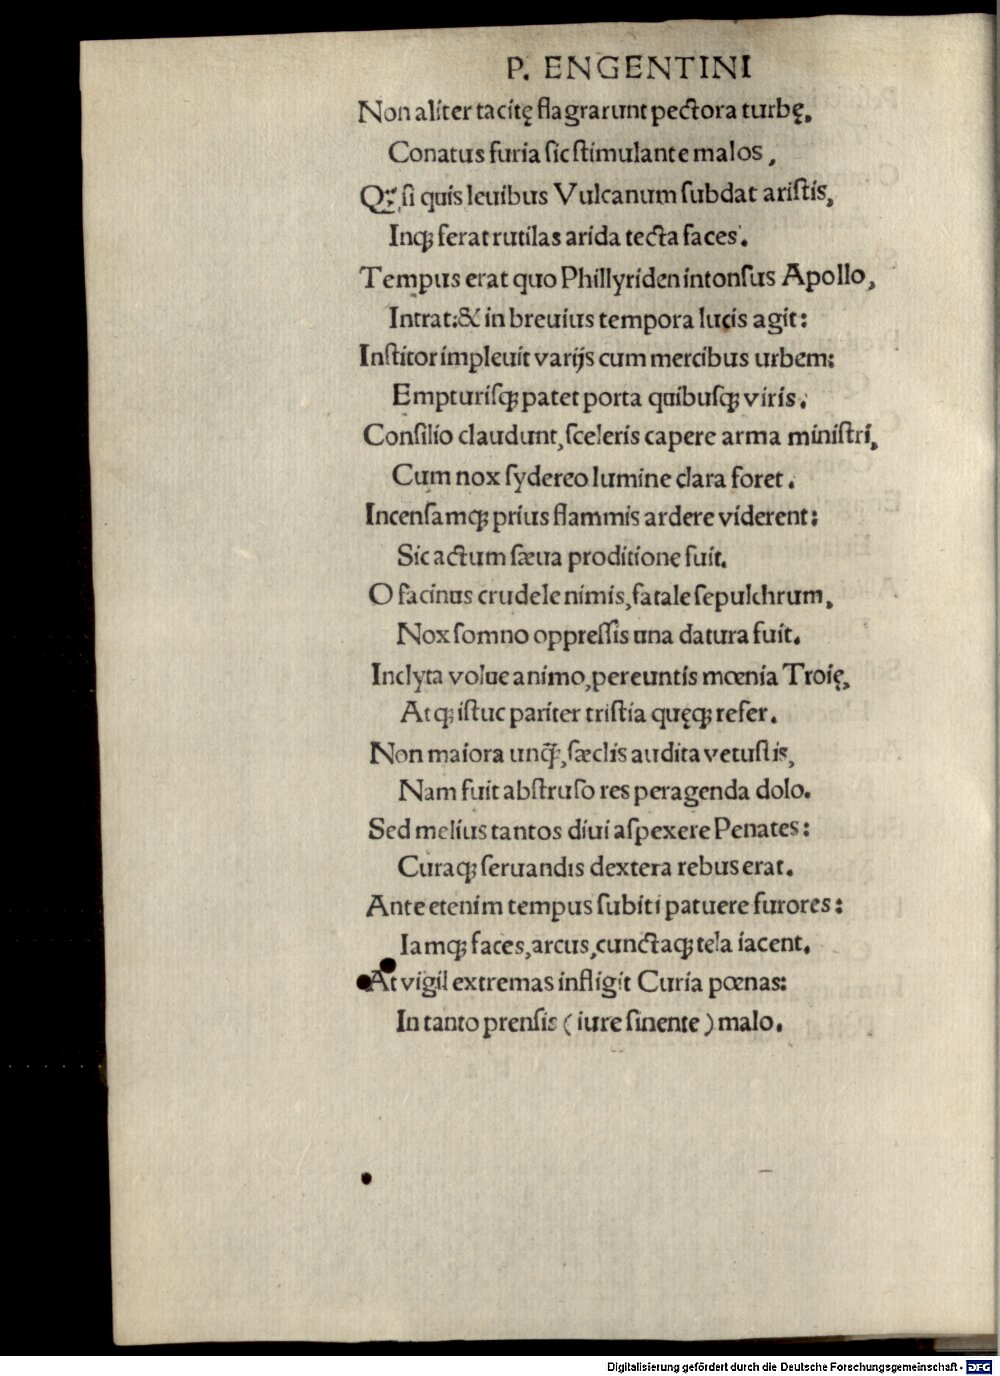 P. ENGENTINI
Non aliter tacitę flagrarunt pectora turbę,
Conatus furia sic stimulante malos,
Qꝫ, si quis leuibus Vulcanum subdat aristis,
Inqꝫ ferat rutilas arida tecta faces.
Tempus erat quo Phillyriden intonsus Apollo,
Intrat:& in breuius tempora lucis agit:
Institor impleuit varijs cum mercibus urbem:
Empturisqꝫ patet porta quibusqꝫ viris.
Consilio claudunt, sceleris capere arma ministri,
Cum nox sydereo lumine clara foret.
Incensamqꝫ prius flammis ardere viderent:
Sic actum sæua proditione fuit.
O facinus crudele nimis, fatale sepulchrum,
Nox somno oppressis una datura fuit.
Inclyta volue animo, pereuntis mœnia Troię,
Atqꝫ istuc pariter tristia quęqꝫ refer.
Non maiora unq̃, sæclis audita vetustis,
Nam fuit abstruso res peragenda dolo.
Sed melius tantos diui aspexere Penates:
Curaqꝫ seruandis dextera rebus erat.
Ante etenim tempus subiti patuere furores:
Iamqꝫ faces, arcus, cunctaqꝫ tela iacent.
At vigil extremas infligit Curia pœnas:
In tanto prensis (iure sinente) malo.
Digitalisierung gefördert durch die Deutsche Forschungsgemeinschaft - DFG